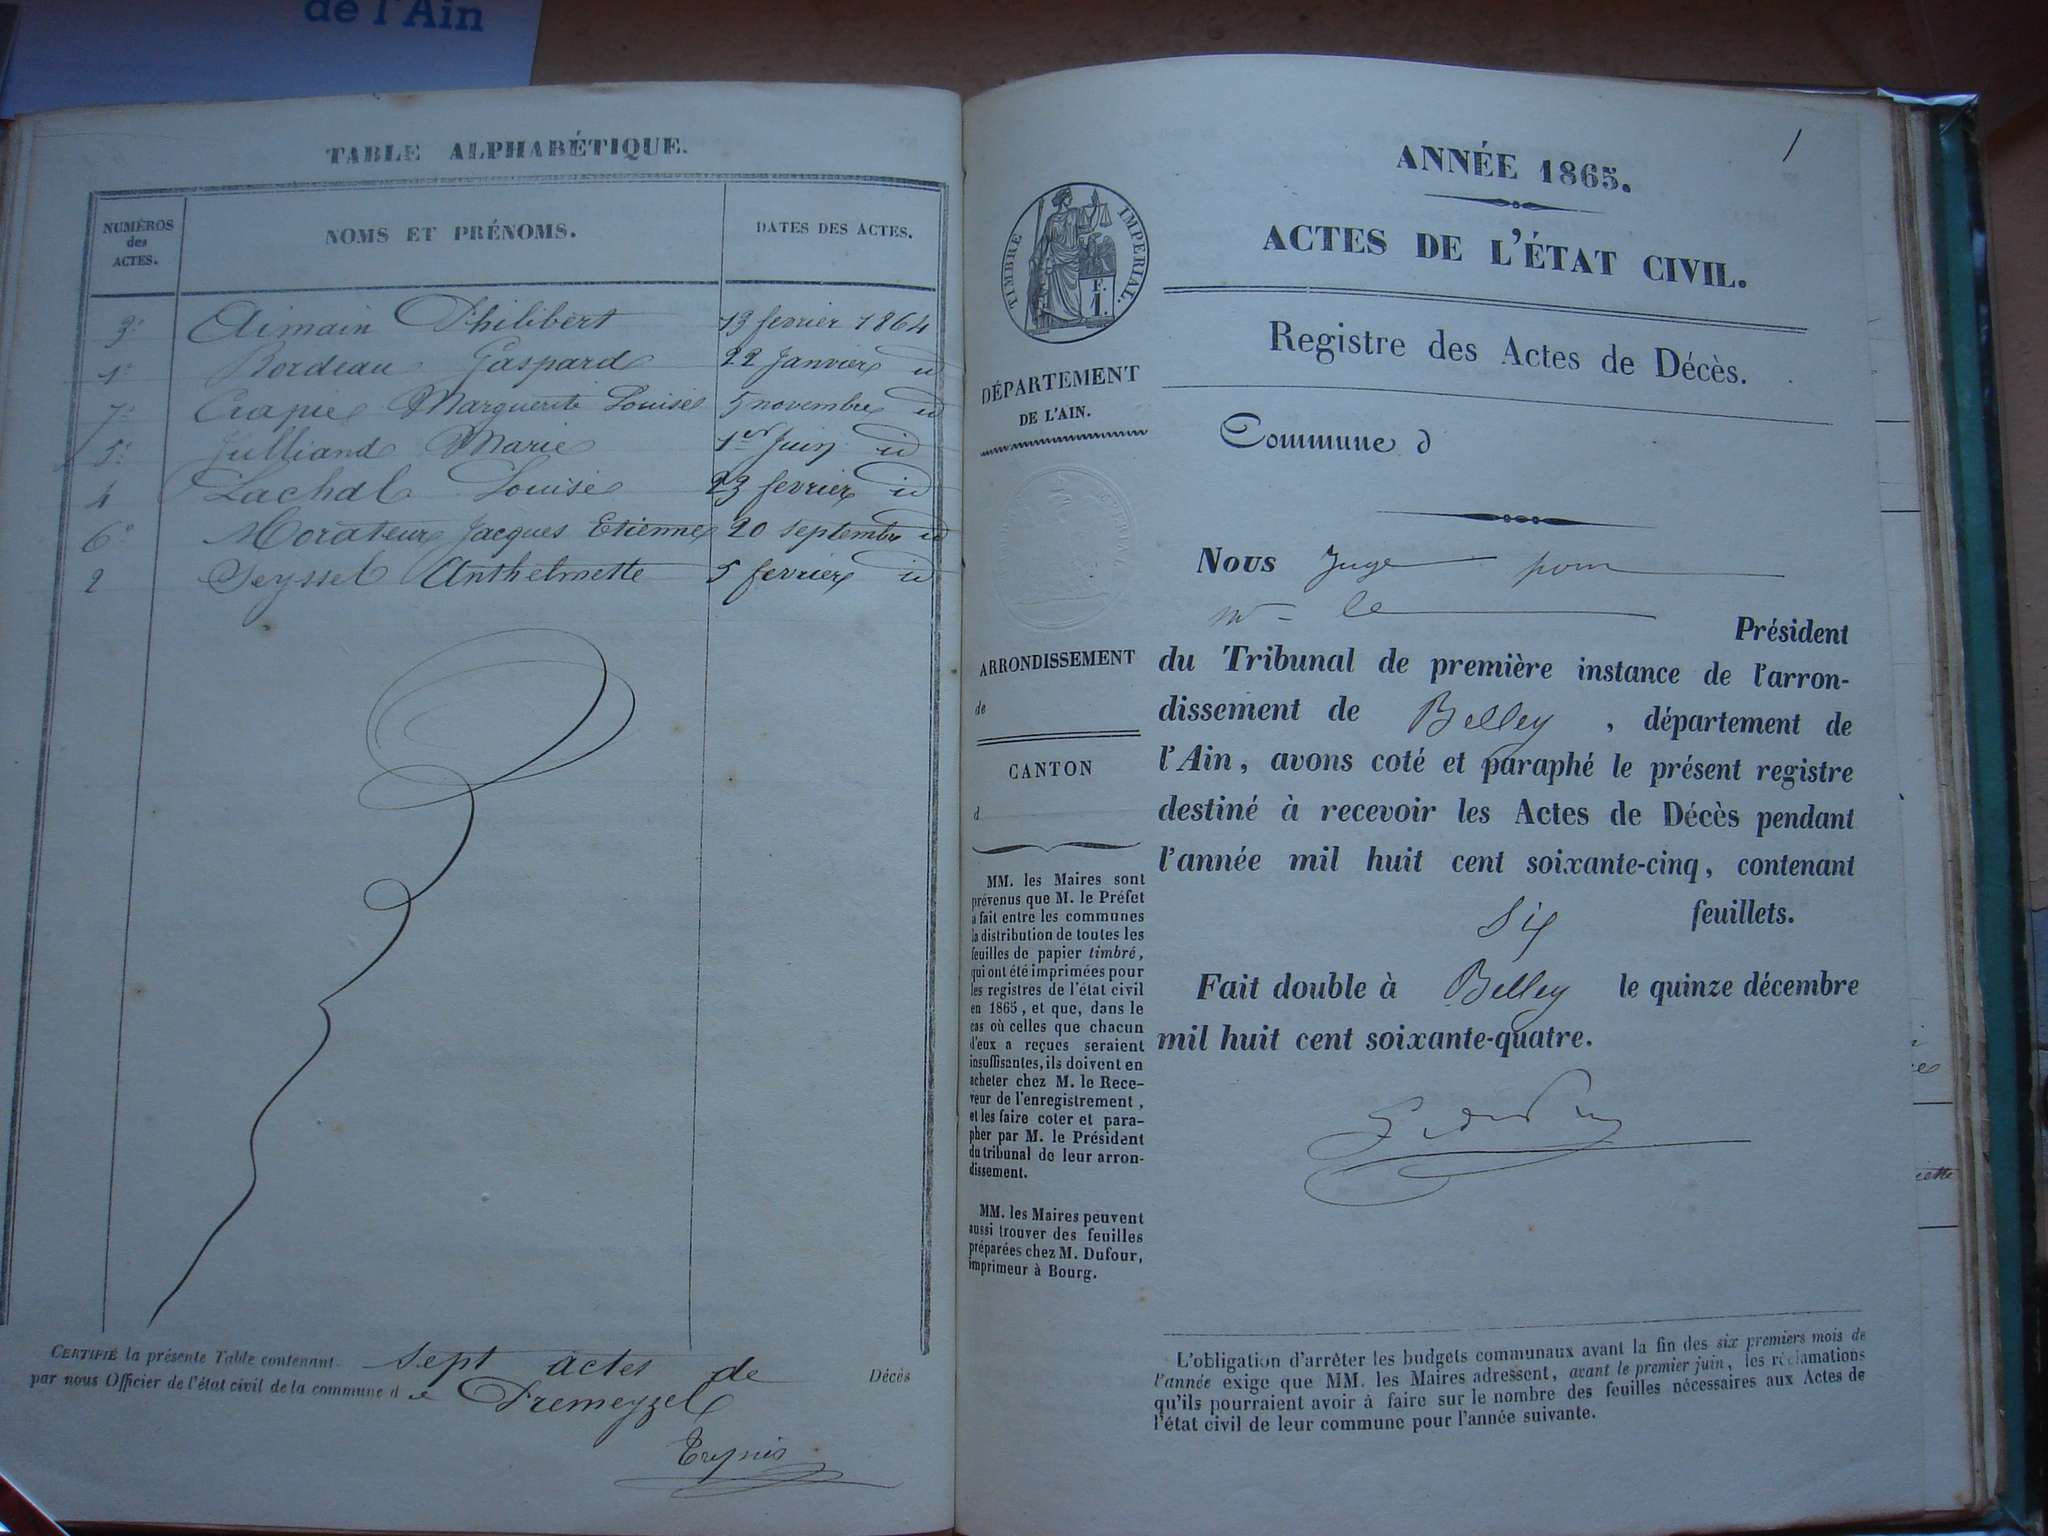 de l'Ain
TABLE ALPHABÉTIQUE.
NUMÉROS des ACTES. NOMS ET PRÉNOMS. DATES DES ACTES.
3° Aimain Philibert 13 fevrier 1864
1° Bordeau Gaspard 22 Janvier id
7° Crapie Marguerite Louise 5 novembre id
5° Julliand Marie 1er Juin id
4 Lachal Louise 23 fevrier id
6° Morateur Jacques Etienne 20 septembre id
2 Seyssel Anthelmette 5 fevrier id
CERTIFIÉ la présente Table contenant sept actes de Décès
par nous Officier de l'état civil de la commune d e Premeyzel
1
ANNÉE 1865.
ACTES DE L'ÉTAT CIVIL.
Registre des Actes de Décès.
Commune d
TIMBRE IMPERIAL.
F.
1.
DÉPARTEMENT
DE L'AIN.
ARRONDISSEMENT
de
CANTON
d
MM. les Maires sont
prévenus que M. le Préfet
a fait entre les communes
la distribution de toutes les
feuilles de papier timbré,
qui ont été imprimées pour
les registres de l'état civil
en 1865, et que, dans le
cas où celles que chacun
d'eux a reçues seraient
insuffisantes, ils doivent en
acheter chez M. le Rece-
veur de l'enregistrement,
et les faire coter et para-
pher par M. le Président
du tribunal de leur arron-
dissement.
MM. les Maires peuvent
aussi trouver des feuilles
préparées chez M. Dufour,
imprimeur à Bourg.
Nous Juge pour
mr le Président
du Tribunal de première instance de l'arron-
dissement de Belley, département de
l'Ain, avons coté et paraphé le présent registre
destiné à recevoir les Actes de Décès pendant
l'année mil huit cent soixante-cinq, contenant
six feuillets.
Fait double à Belley le quinze décembre
mil huit cent soixante-quatre.
L'obligation d'arrêter les budgets communaux avant la fin des six premiers mois de
l'année exige que MM. les Maires adressent, avant le premier juin, les réclamations
qu'ils pourraient avoir à faire sur le nombre des feuilles nécessaires aux Actes de
l'état civil de leur commune pour l'année suivante.